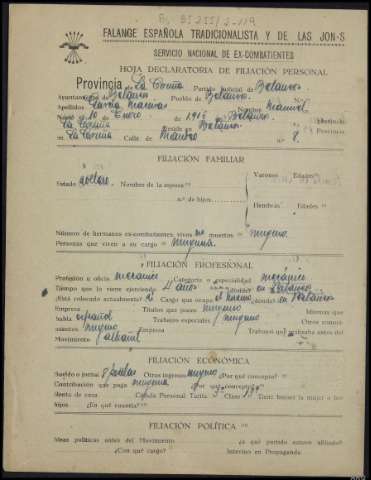 B. 35255/2-119
FALANGE ESPAÑOLA TRADICIONALISTA Y DE LAS JON-S
SERVICIO NACIONAL DE EX-COMBATIENTES
HOJA DECLARATORIA DE FILIACIÓN PERSONAL
Provincia de La Coruña Partido Judicial de Betanzos
Ayuntamiento de Betanzos Pueblo de Betanzos
Apellidos García Nombre Manuel
Nació el 10 de Enero de 191 en Betanzos
La Coruña Reside en Betanzos Provincia
La Coruña Calle de n.º 8.
FILIACIÓN FAMILIAR
Varones Edades
Estado soltero. Nombre de la esposa
n.º de hijos
Hembras Edades
Número de hermanos ex-combatientes, vivos no muertos ninguno.
Personas que viven a su cargo ninguna.
FILIACIÓN PROFESIONAL
Profesión u oficio mecánico Categoría o especialidad mecánico
Tiempo que la viene ejerciendo 4 años en Betanzos
¿Está colocado actualmente? si Cargo que ocupa el mismo ¿dónde? en Betanzos
Empresa Títulos que posee ninguno Idiomas que
habla español Trabajos especiales ninguno Otros conoci-
mientos ninguno Empresa Trabajos que realizaba antes del
Movimiento
FILIACIÓN ECONÓMICA
Sueldo o jornal 8 pesetas Otros ingresos ninguno ¿Por qué concepto?
Contribución que paga ninguna ¿Por qué concepto?
Renta de casa Cédula Personal Tarifa 3ª Clase 13ª Tiene hechos la mujer o los
hijos ¿En qué cuantía?
FILIACIÓN POLÍTICA
Ideas políticas antes del Movimiento ¿a qué partido estuvo afiliado?
¿Con qué cargo? Intervino en Propaganda